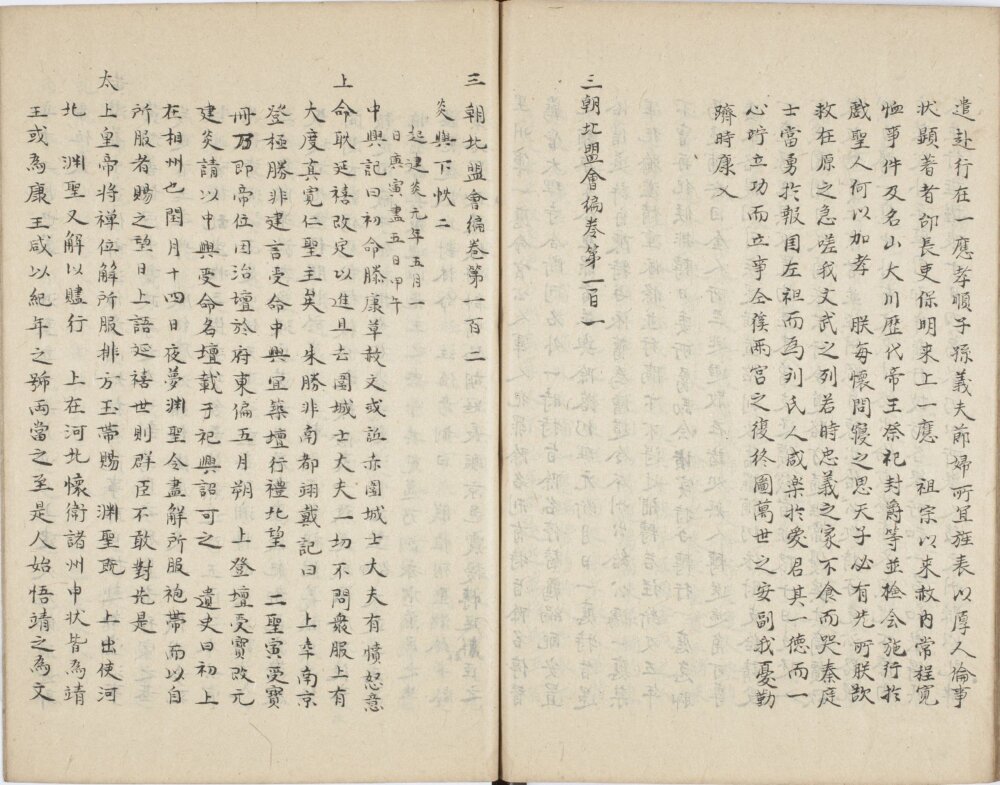 遣赴行在一應孝順子孫義夫節婦所宜旌表以厚人倫事
狀顯著者卽長吏保明來上一應　祖宗以來赦內常程寬
恤事件及名山大川歷代帝王祭祀封爵等並檢會施行於
戱聖人何以加孝　朕每懷問寢之思天子必有先所朕歎
救在原之急嗟我文武之列若時忠義之家不食而哭秦庭
士當勇於報囯左袒而為劉氏人咸樂於愛君其一德而一
心貯立功而立亊仝徯兩宮之復終圖萬世之安副我憂勤
躋時康乂
三朝北盟會編卷第一百一
三朝北盟會編卷第一百二
炎興下帙二
起建炎元年五月一
日庚寅盡五日甲午
中興記曰初命滕康草赦文或詆赤圍城士大夫有憤怒意
上命耿延禧改定以進且去圍城士大夫一切不問衆服上有
大度真寬仁聖主矣　朱勝非南都翊戴記曰　上幸南京
登極勝非建言受命中興宜築壇行禮北望　二聖寅受寶
冊乃即帝位因治壇於府東偏五月朔　上登壇受寶改元
建炎請以中興受命名壇載于祀興詔可之　遺史曰初上
在相州也閏月十四日夜夢淵聖令盡解所服袍帶而以自
所服者賜之望日上語延禧世則群臣不敢對先是
太上皇帝將禪位解所服排方玉帶賜淵聖旣　上出使河
北　淵聖又解以贐行　上在河北懷衛諸州申狀皆為靖
王或為康王咸以紀年之號兩當之至是人始悟靖之為文